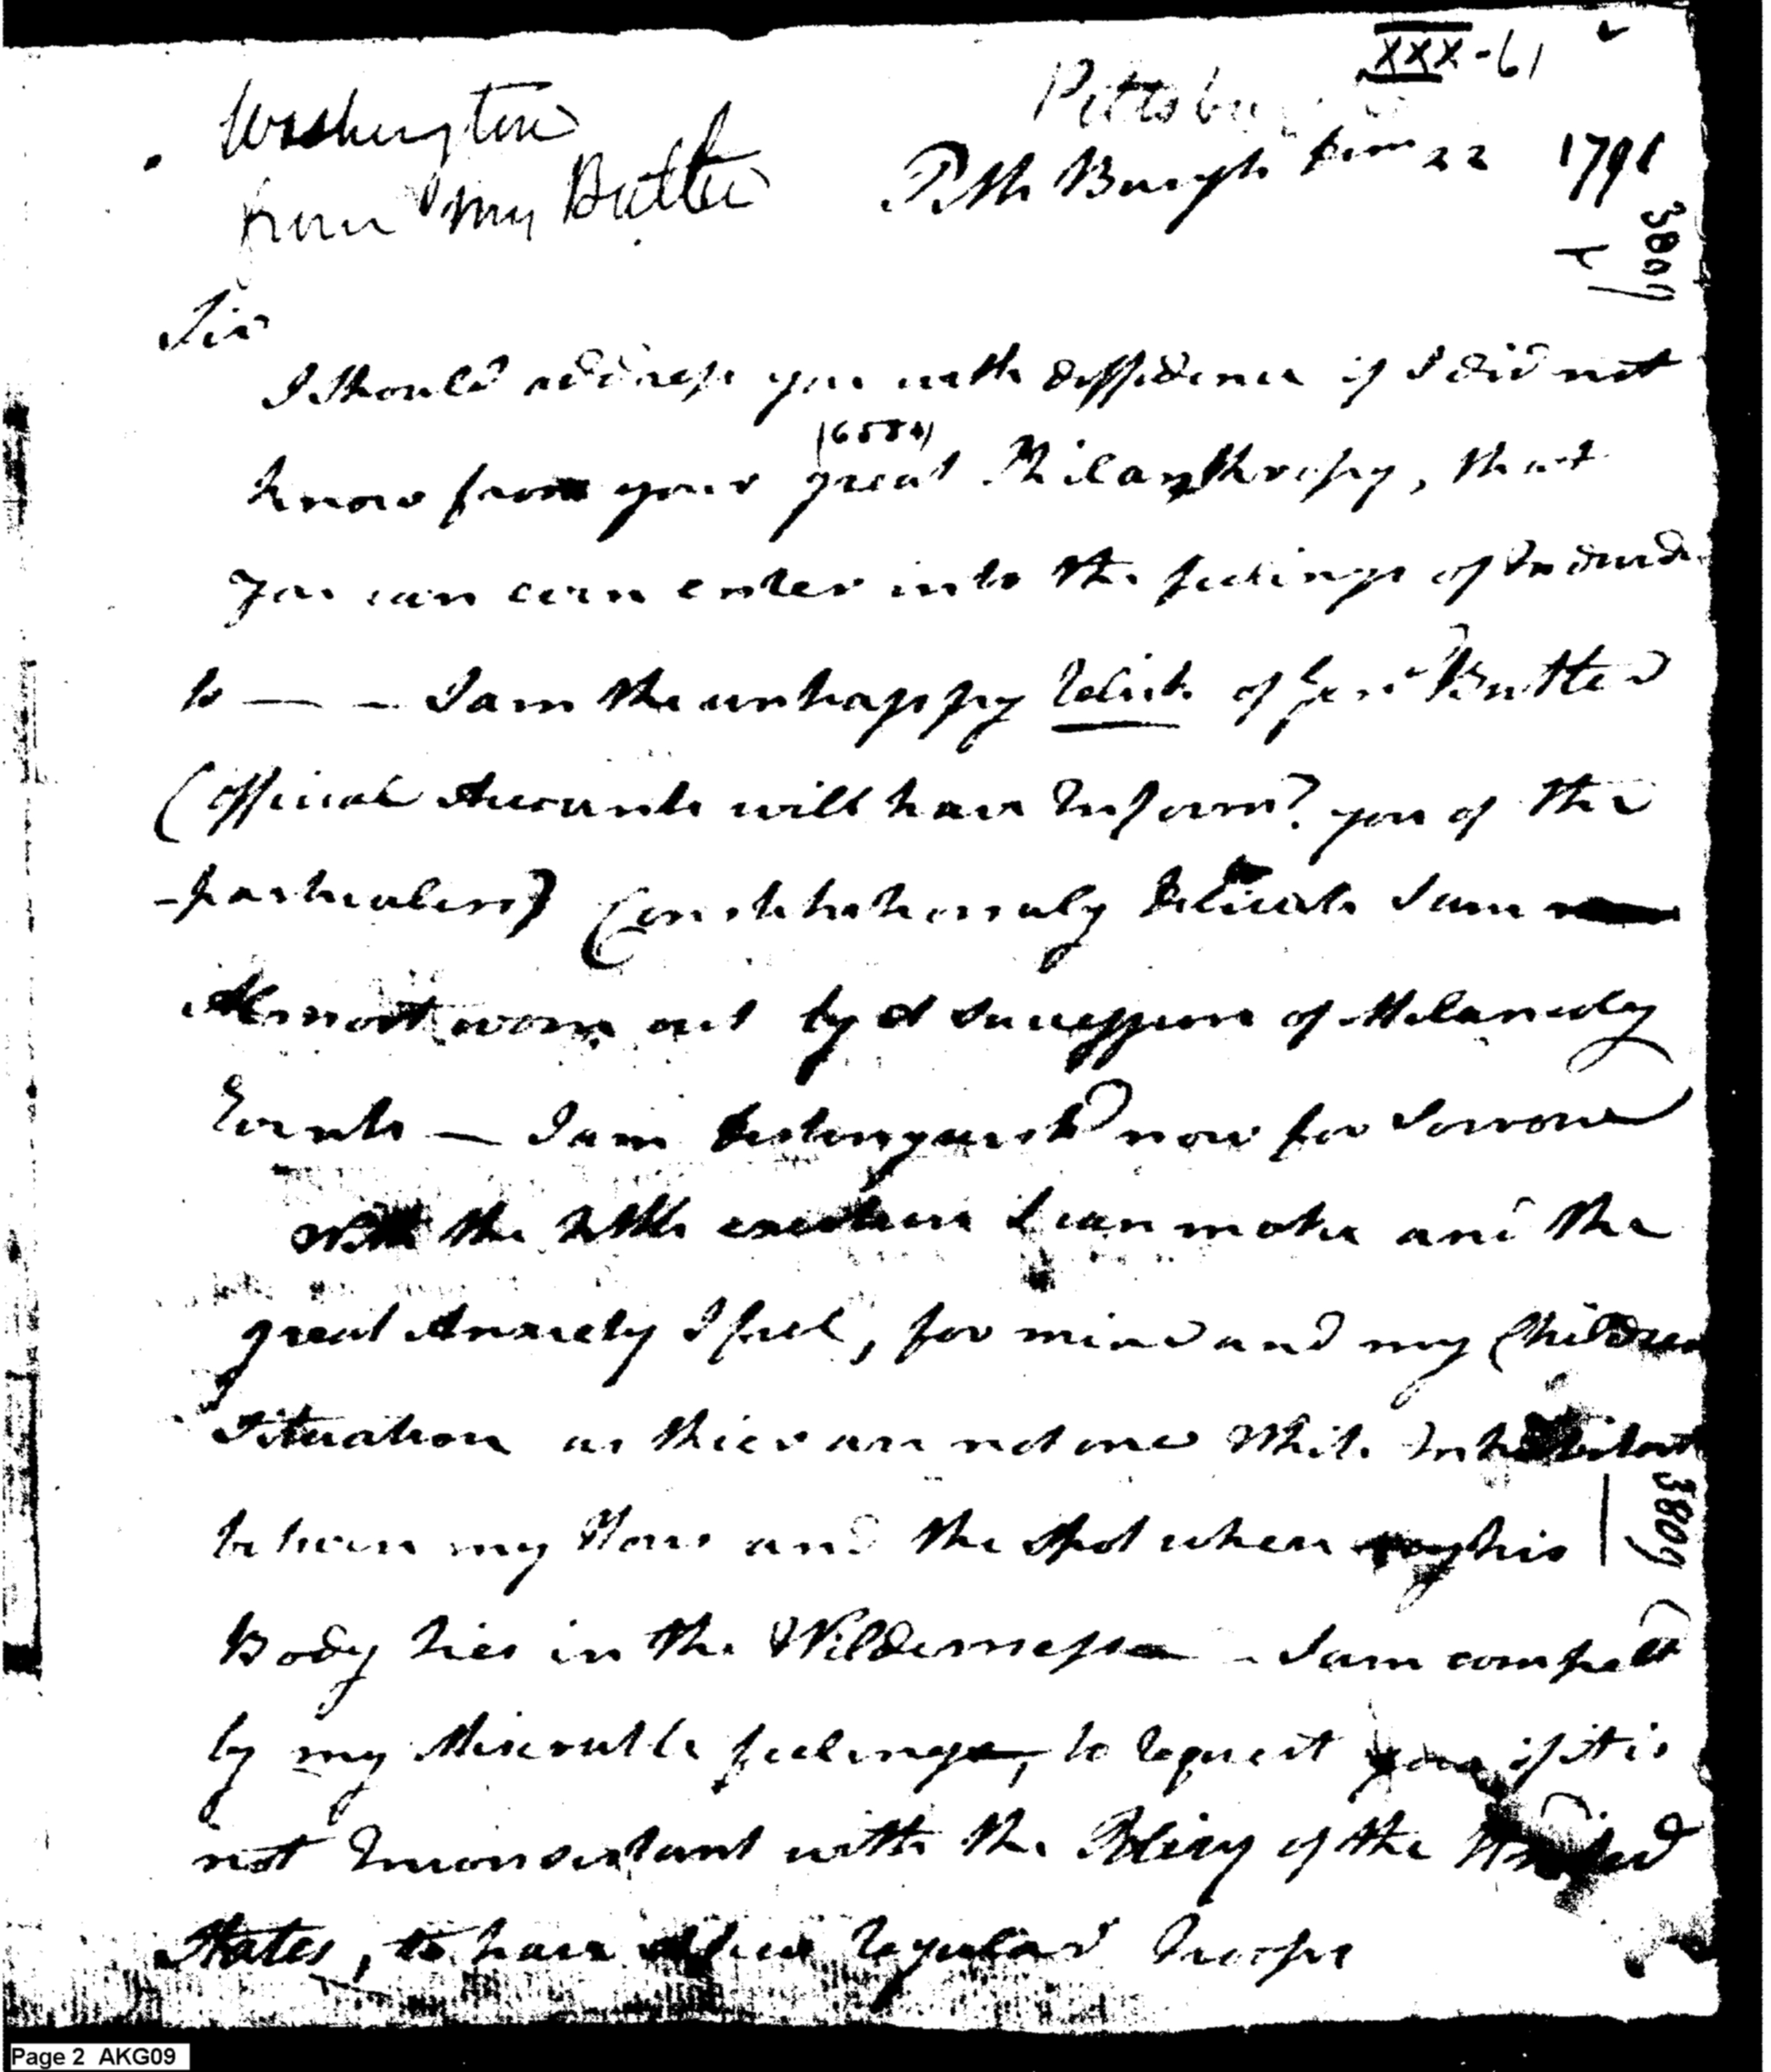 XXX-61
Washington
from Mrs Butler
Pittsburgh
Pitts Burgh 22 1791
3809
Sir
I Should address you with diffidence if I did not
(6584)
know from your great Philanthropy, that
you can even enter into the feelings of Individu
ls — – I am the unhappy Relict of Genl Butler
(official Accounts will have Inform'd you of the
-particulars) Constitutionaly Delicate I am
Almost worn out by A Succession of Melancoly
Events — I am Distinguish'd now for Sorrow
With the little exertions I can make and the
great Anxiety I feel, for mine and my Children
Situation as their are not one White Inhabitant
between my House and the Spot where his
Body lies in the Wilderness – I am compell'd
by my Miserable feelings, to request you if it is
not Inconsistant with the Policy of the United
States, to have a few regular Troops
3809
Page 2 AKG09